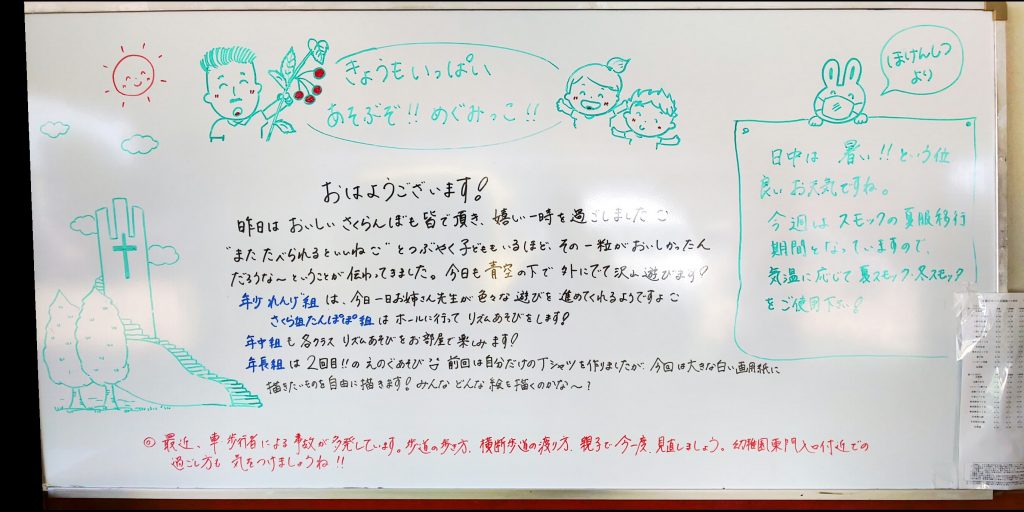 きょうもいっぱい
あそぶぞ!! めぐみっこ!!
ほけんしつ
より
おはようございます!
昨日は おいしい さくらんぼも皆で頂き、嬉しい一時を過ごしました
"また たべられるといいね"とつぶやく子どももいるほど、その一粒がおいしかったん
だろうな〜ということが伝わってきました。今日も青空の下で外にでて沢山遊びます!
年少れんげ組は、今日一日お姉さん先生が色々な遊びを進めてくれるようですよ
さくら組たんぽぽ組はホールに行ってリズムあそびをします!
年中組も各クラスリズムあそびをお部屋で楽しみます!
年長組は2回目!!のえのぐあそび 前回は自分だけのTシャツを作りましたが、今回は大きな白い画用紙に
描きたいものを自由に描きます!みんなどんな絵を描くのかな〜?
日中は 暑い!!という位
良いお天気ですね。
今週はスモックの夏服移行
期間となっていますので、
気温に応じて夏スモック・冬スモック
をご使用下さい!
◎最近、車 歩行者による事故が多発しています。歩道の歩き方、横断歩道の渡り方、親子で今一度、見直しましょう。幼稚園東門入口付近での
過ごし方も 気をつけましょうね!!